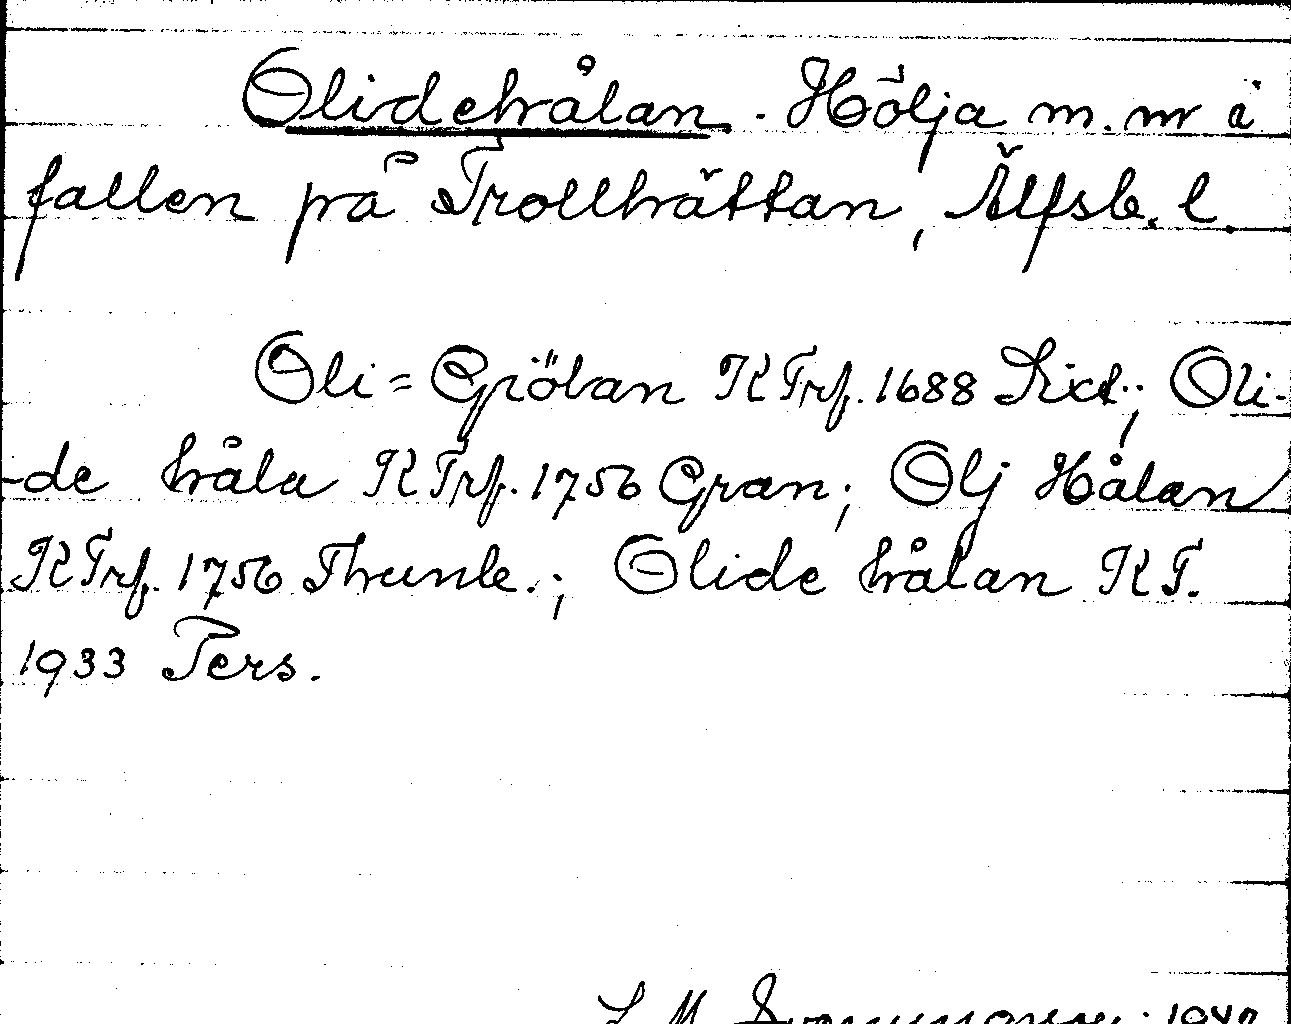 Olidehålan. Hölja m. m i
fallen på Trollhättan, Älfsb. l.
Oli = Gröban KTrf. 1688 Sixt.; Oli-
-de håla KTrf. 1756 Gran; Olj Hålan
KTrf. 1756 Thunb.; Olide hålan KT.
1933 Pers.